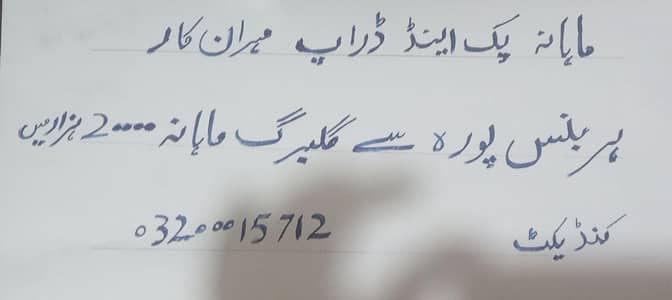 ماہانہ پک اینڈ ڈراپ مہران کار
ہربنس پورہ سے گلبرگ ماہانہ 20000 ہزار میں
کنڈیکٹ 03200015712